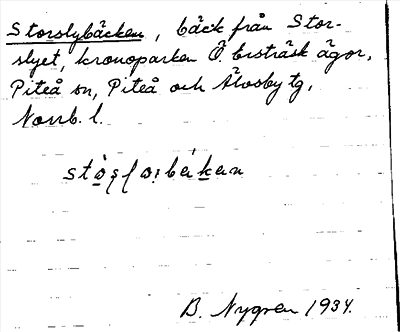 Storslybäcken, bäck från Stor-
slyet, kronoparken Ö. Ersträsk ägor,
Piteå sn, Piteå och Älvsby tg,
Norrb. l.
B. Nygren 1934.